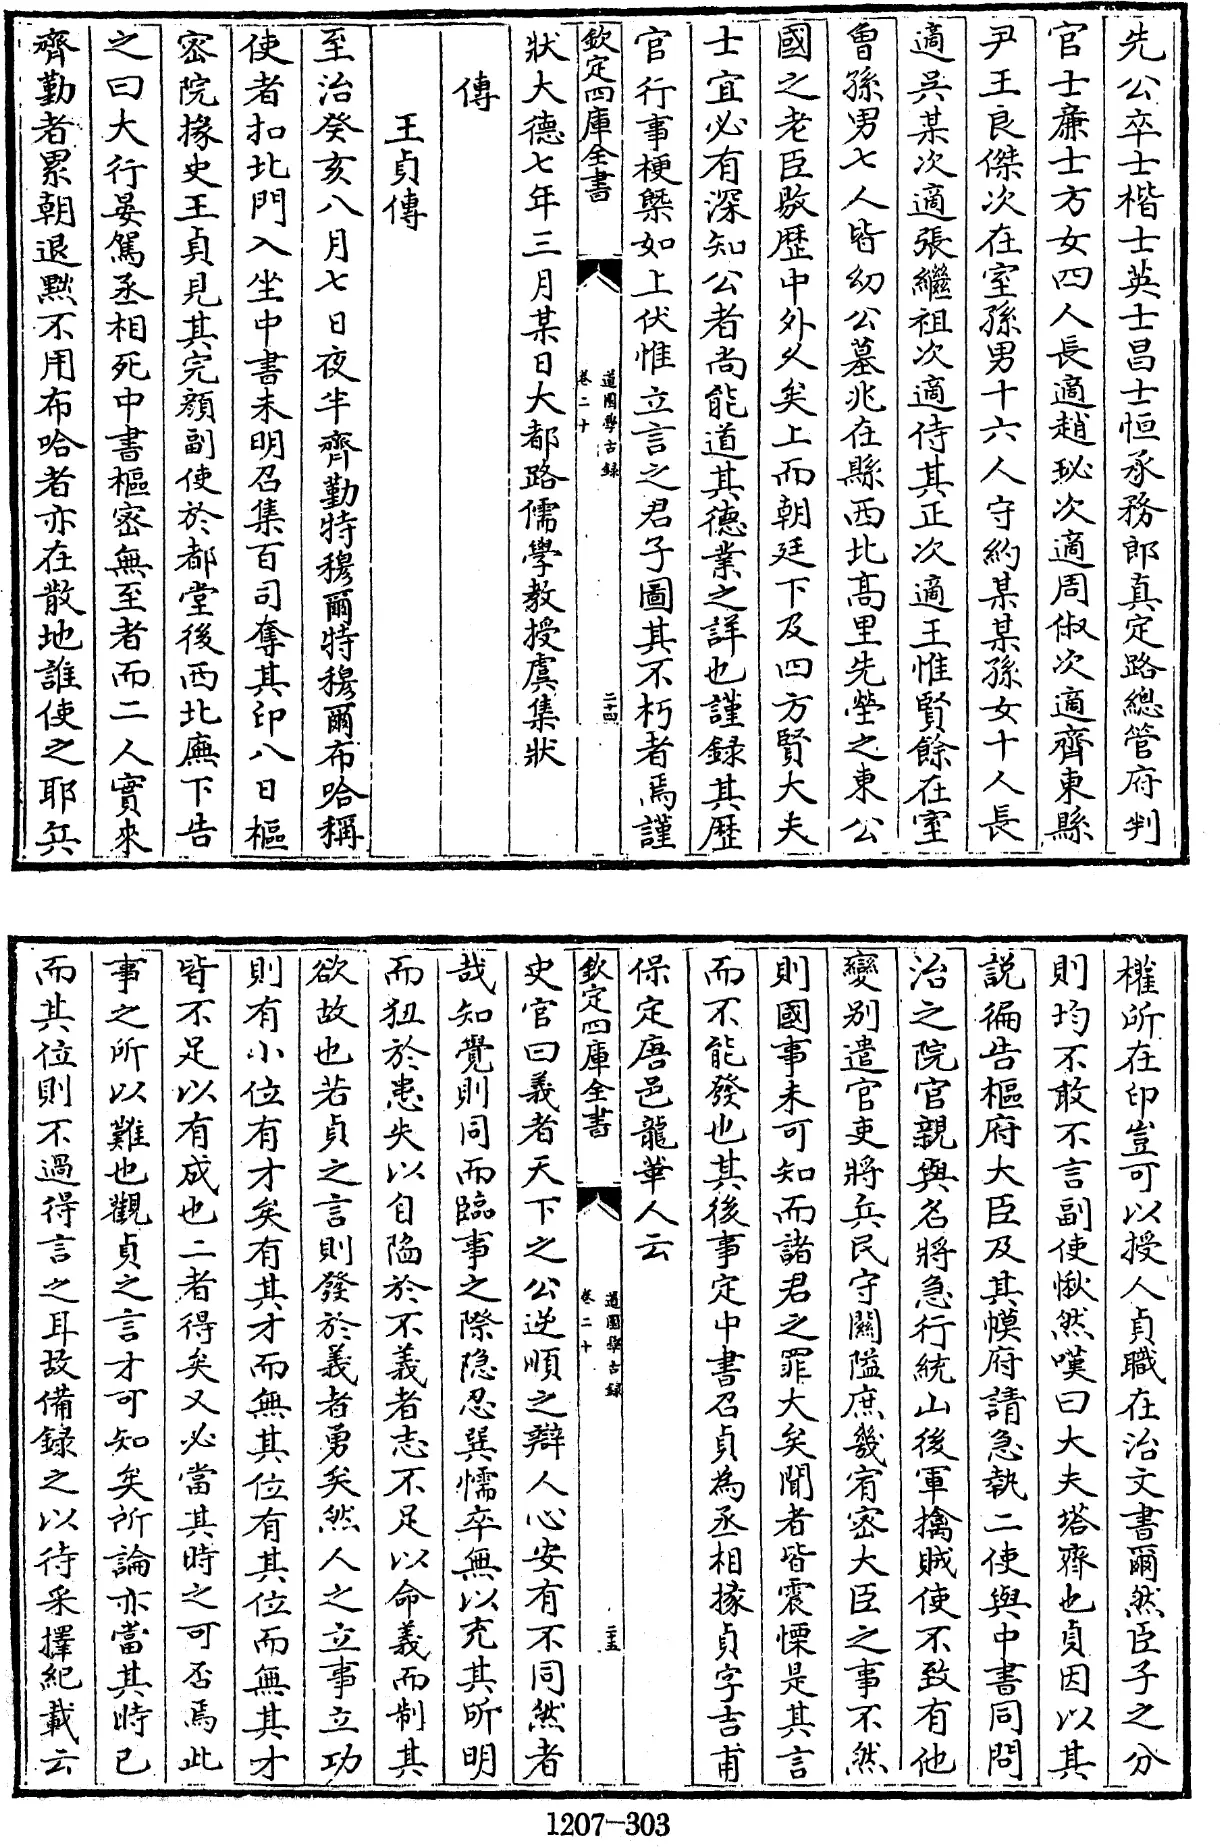 先公卒士楷士英士昌士恒承務郎真定路總管府判
官士亷士方女四人長適趙珌次適周俶次適齊東縣
尹王良傑次在室孫男十六人守約某某孫女十人長
適吳某次適張繼祖次適侍其正次適王惟賢餘在室
曽孫男七人皆幼公墓兆在縣西北高里先塋之東公
國之老臣敭歷中外乆矣上而朝廷下及四方賢大夫
士宜必有深知公者尚能道其德業之詳也謹録其歴
官行事梗槩如上伏惟立言之君子圖其不朽者焉謹
欽定四庫全書
道園學古録
卷二十
二十四
狀大德七年三月某日大都路儒學教授虞集狀
傳
王貞傳
至治癸亥八月七日夜半齊勤特穆爾特穆爾布哈稱
使者扣北門入坐中書未明召集百司奪其印八日樞
密院掾史王貞見其完顔副使於都堂後西北廡下告
之曰大行晏駕丞相死中書樞密無至者而二人實來
齊勤者累朝退黙不用布哈者亦在散地誰使之耶兵
權所在印豈可以授人貞職在治文書爾然臣子之分
則均不敢不言副使愀然嘆曰大夫塔齊也貞因以其
說徧告樞府大臣及其幙府請急執二使與中書同問
治之院官親與名將急行統山後軍擒賊使不致有他
變别遣官吏將兵民守闗隘庶幾宥密大臣之事不然
則國事未可知而諸君之罪大矣聞者皆震慄是其言
而不能發也其後事定中書召貞為丞相掾貞字吉甫
保定唐邑龍華人云
欽定四庫全書
道園學古録
卷二十
二十五
史官曰義者天下之公逆順之辯人心安有不同然者
哉知覺則同而臨事之際隐忍巽懦卒無以充其所明
而狃於患失以自陥於不義者志不足以命義而制其
欲故也若貞之言則發於義者勇矣然人之立事立功
則有小位有才矣有其才而無其位有其位而無其才
皆不足以有成也二者得矣又必當其時之可否焉此
事之所以難也觀貞之言才可知矣所論亦當其時已
而其位則不過得言之耳故備録之以待采擇紀載云
1207-303